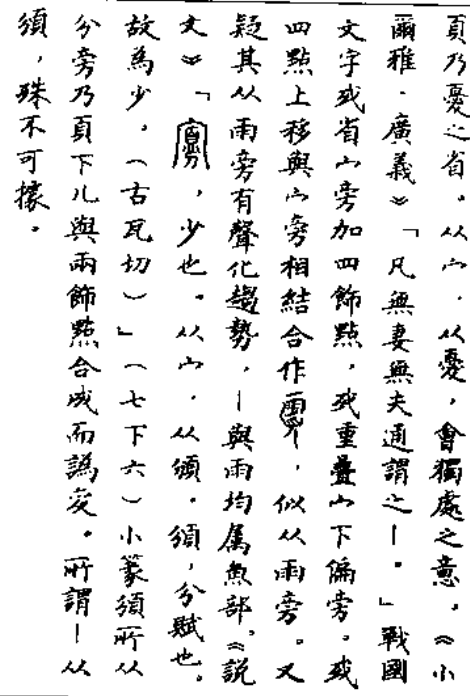 頁乃憂之省。从宀,从憂,會獨處之意。《小
爾雅·廣義》「凡無妻無夫通謂之—。」戰國
文字或省宀旁加四飾點,或重疊宀下偏旁。或
四點上移與宀旁相結合作,似从雨旁。又
疑其从雨旁有聲化趨勢,—與雨均属魚部。《說
文》「寡,少也。从宀,从頒。頒,分賦也。
故為少。(古瓦切)」(七下六)小篆頒所从
分旁乃頁下儿與兩飾點合成而譌变。所謂—从
頒,殊不可據。